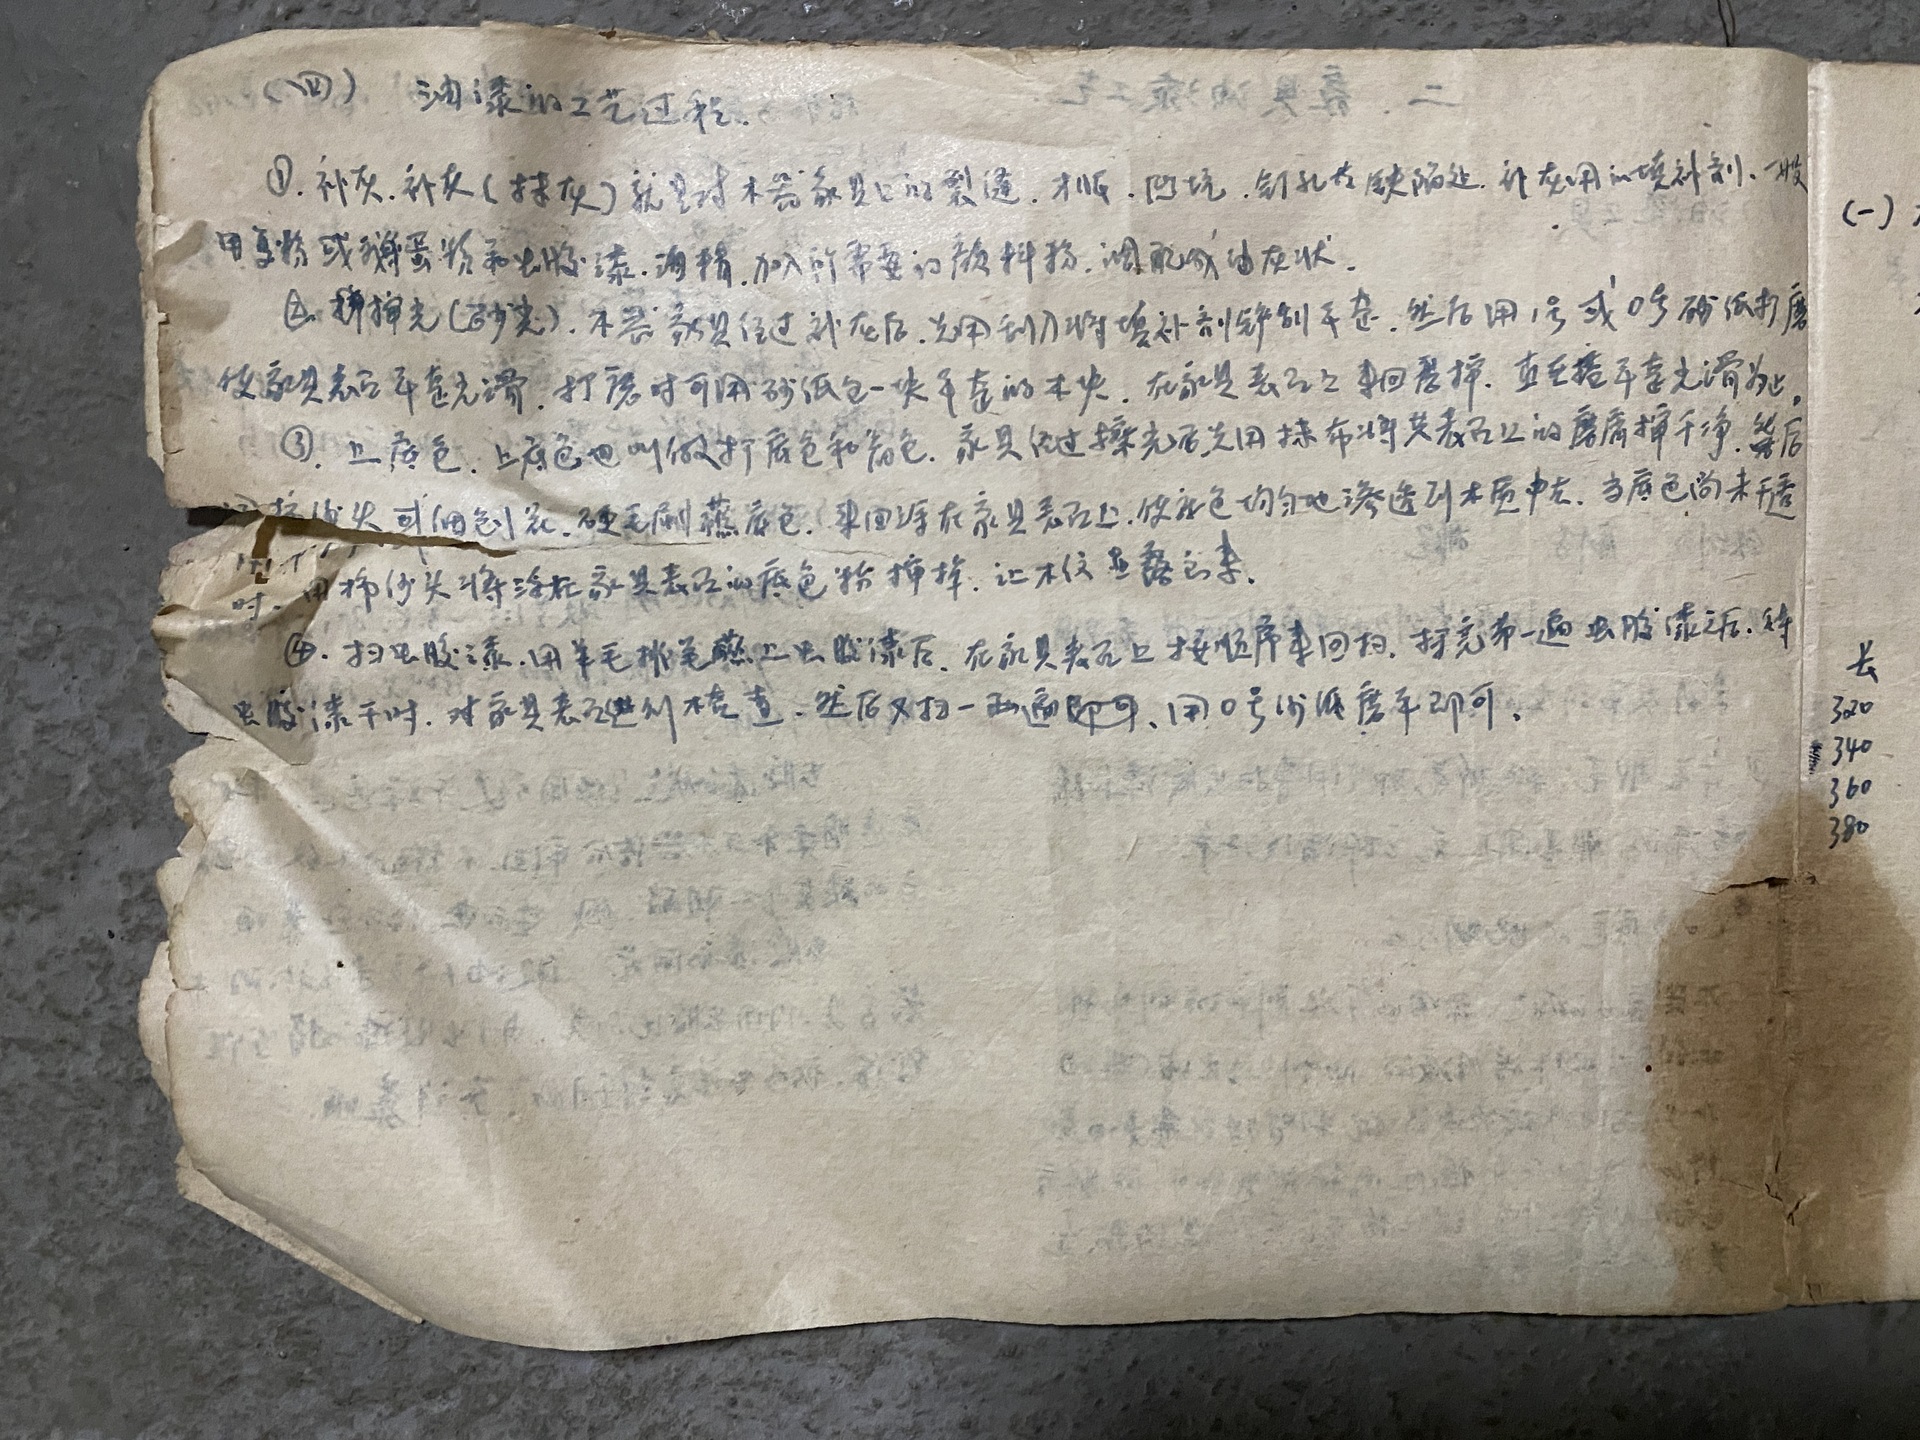 (四) 油漆的工艺过程.
①. 补灰. 补灰(抹灰)就是对木器家具上的裂缝. 凹坑. 钉孔 缺陷处. 补灰用的填补剂. 一般
用 粉或鸡蛋粉和虫胶漆. 酒精. 加入所需要的颜料粉. 调配成油灰状.
② 擦光(砂光). 木器家具经过补灰后. 先用刮刀将填补剂 刮平整. 然后用1号或0号砂纸打磨
使家具表面平整光滑. 打磨时可用砂纸包一块平整的木块. 在家具表面上来回磨擦. 直至 平整光滑为止.
③. 上底色. 上底色也叫做打底色和着色. 家具经过擦光后先用抹布将其表面上的磨屑擦干净. 然后
纱头或 硬毛刷蘸底色. 来回涂在家具表面上. 使底色均匀地渗透到木质中去. 当底色尚未干透
时. 用棉纱头将涂在家具表面的底色粉擦掉. 让木纹显露出来.
④. 扫虫胶漆. 用羊毛排笔蘸上虫胶漆后. 在家具表面上按顺序来回扫. 扫完第一遍虫胶漆之后. 待
虫胶漆干时. 对家具表面进行检查. 然后又扫一 遍即可、用0号纱纸磨平即可.
(一)
长
320
340
360
380